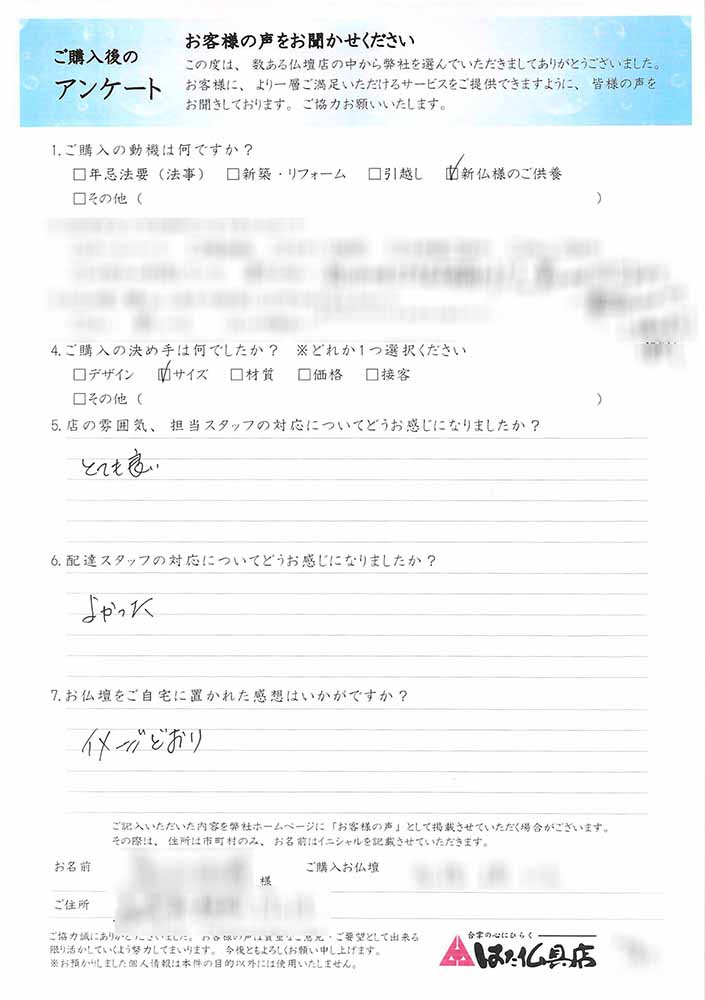 ご購入後の
アンケート
お客様の声をお聞かせください
この度は、数ある仏壇店の中から弊社を選んでいただきましてありがとうございました。
お客様に、より一層ご満足いただけるサービスをご提供できますように、皆様の声を
お聞きしております。ご協力お願いいたします。
1.ご購入の動機は何ですか？
□年忌法要（法事） □新築・リフォーム □引越し ☑新仏様のご供養
□その他（ ）
4.ご購入の決め手は何でしたか？ ※どれか1つ選択ください
□デザイン ☑サイズ □材質 □価格 □接客
□その他（ ）
5.店の雰囲気、担当スタッフの対応についてどうお感じになりましたか？
とても良い
6.配達スタッフの対応についてどうお感じになりましたか？
よかった
7.お仏壇をご自宅に置かれた感想はいかがですか？
イメージどおり
ご記入いただいた内容を弊社ホームページに「お客様の声」として掲載させていただく場合がございます。
その際は、住所は市町村のみ、お名前はイニシャルを記載させていただきます。
お名前 様 ご購入お仏壇
ご住所
ご協力誠にありがとうございました。お客様の声は貴重なご意見・ご要望として出来る
限り活かしていくよう努力してまいります。今後ともよろしくお願い申し上げます。
※お預かりしました個人情報は本件の目的以外には使用いたしません。
合掌の心にひらく
はた仏具店